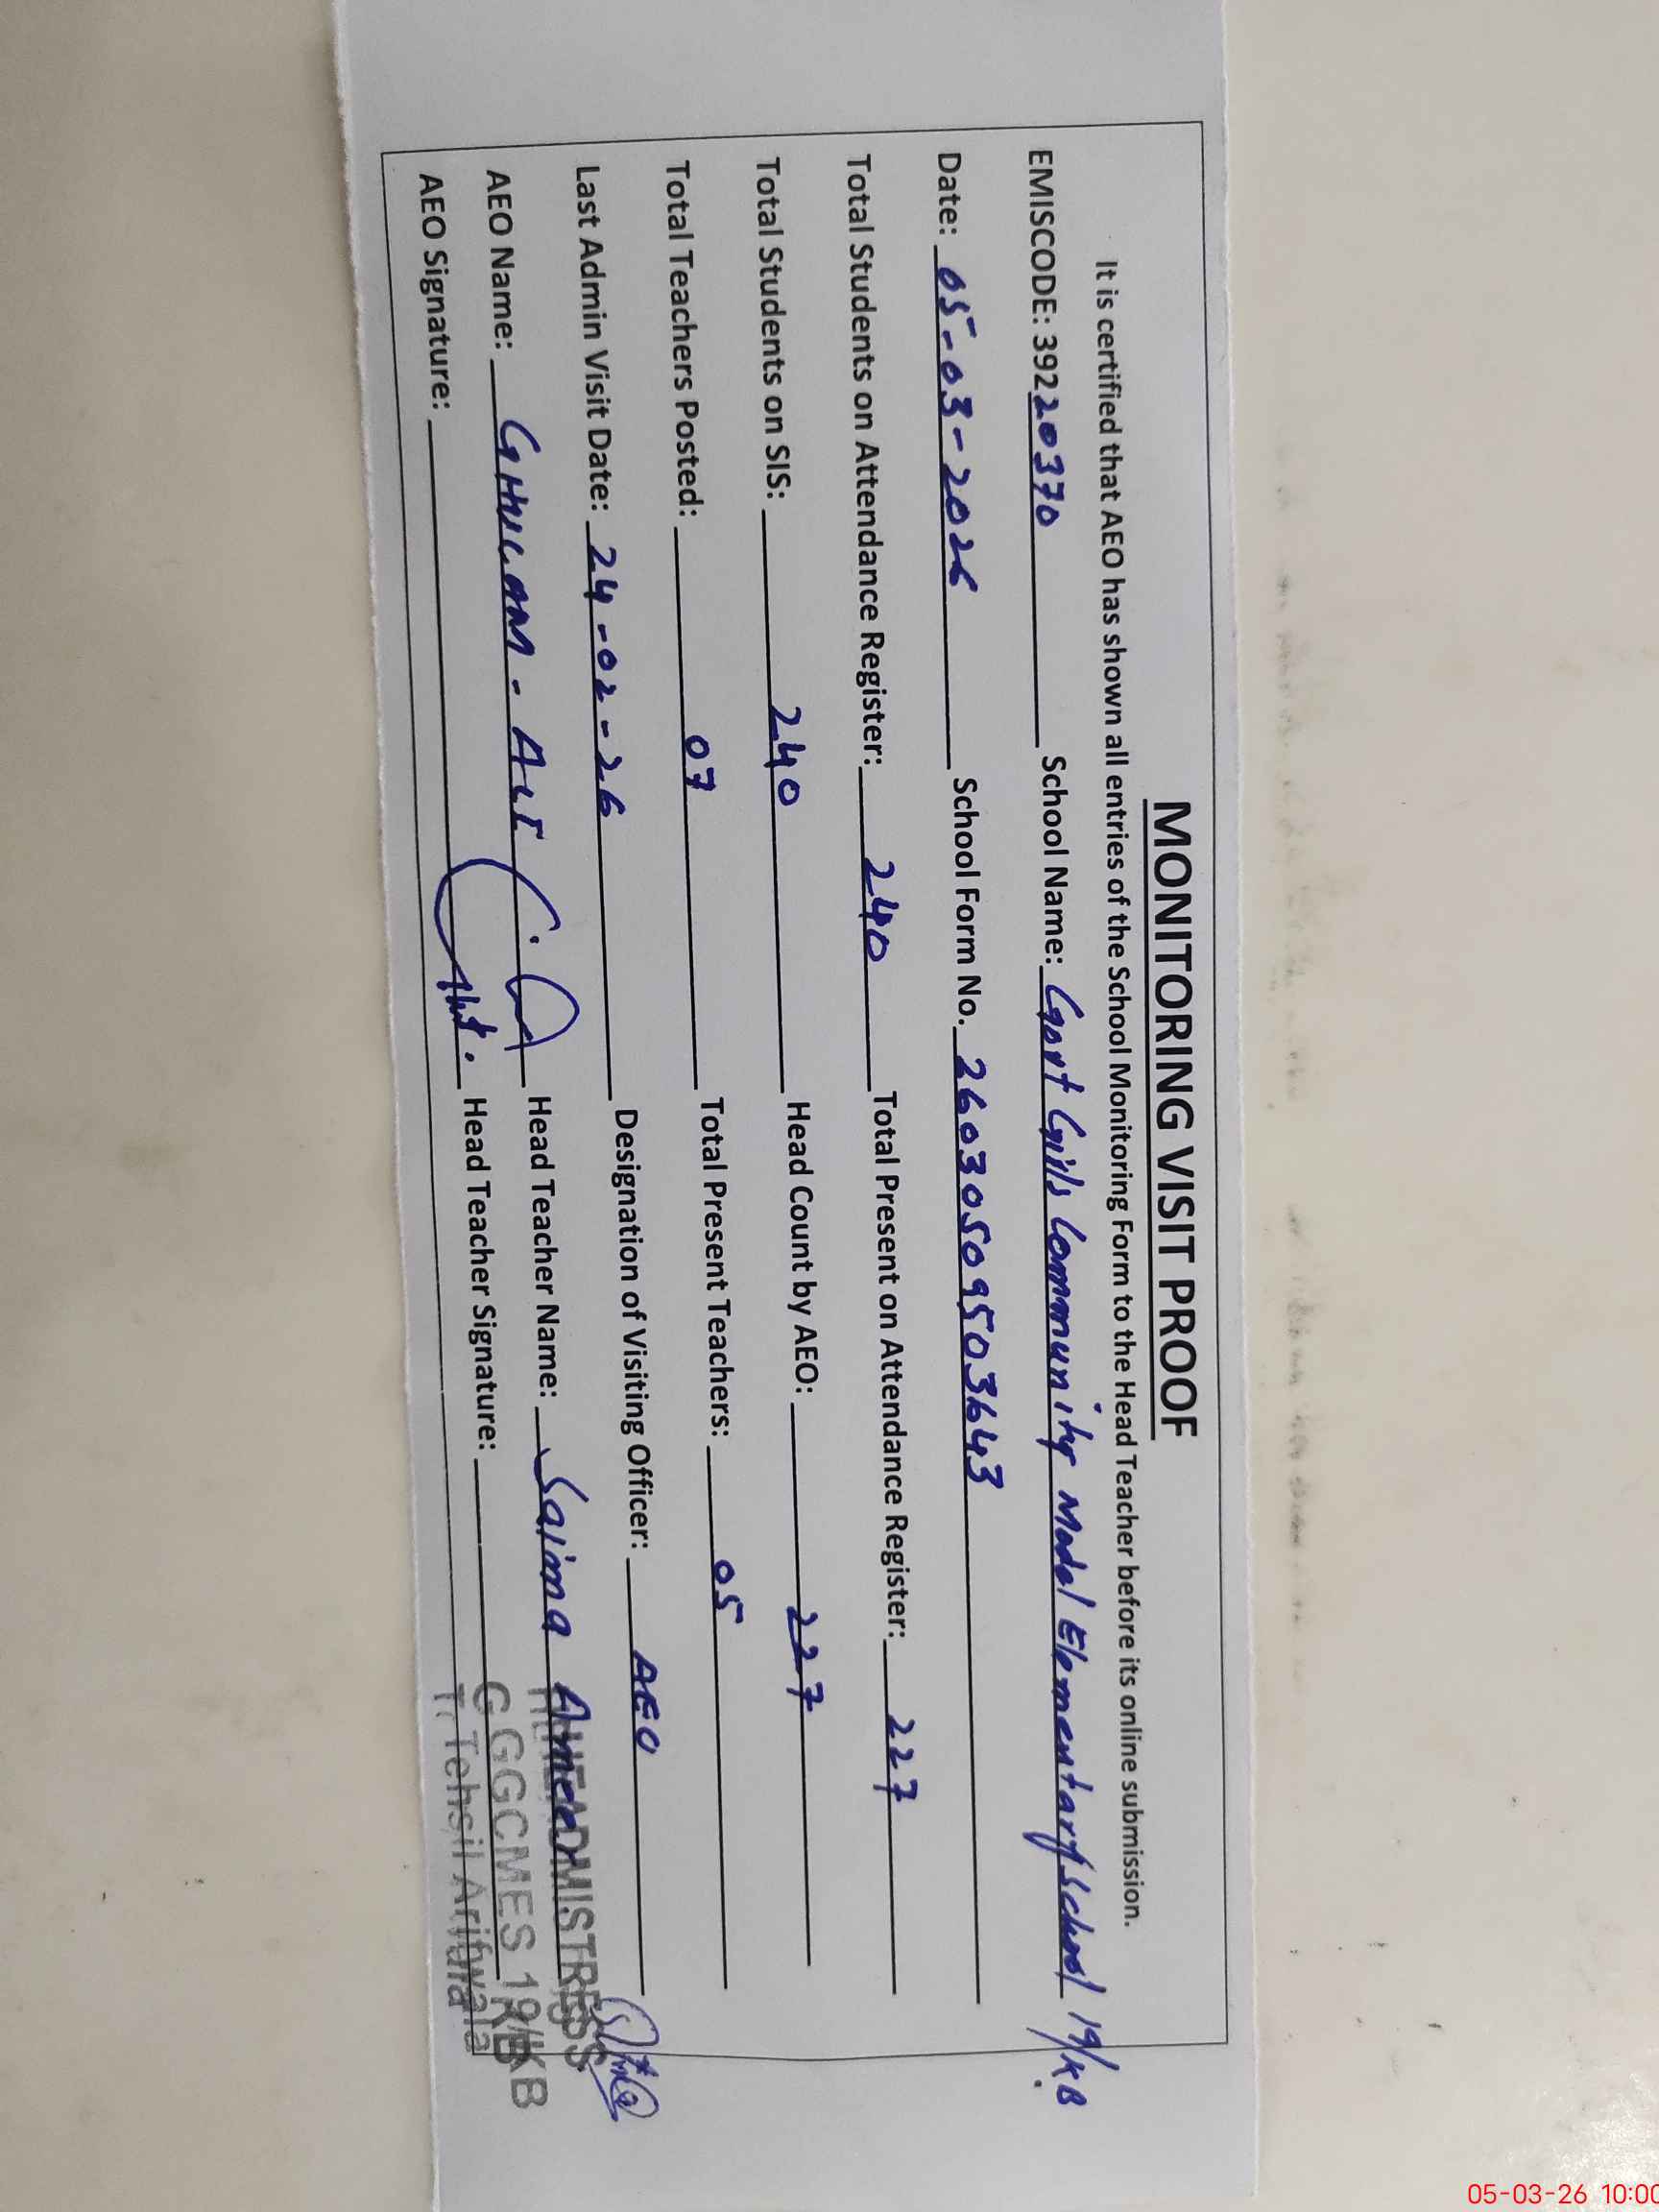 MONITORING VISIT PROOF
It is certified that AEO has shown all entries of the School Monitoring Form to the Head Teacher before its online submission.
EMISCODE: 39220370 School Name: Govt Girls Community Model Elementary School 19/KB
Date: 05-03-2026 School Form No. 26030509503643
Total Students on Attendance Register: 240 Total Present on Attendance Register: 227
Total Students on SIS: 240 Head Count by AEO: 227
Total Teachers Posted: 07 Total Present Teachers: 05
Last Admin Visit Date: 24-02-26 Designation of Visiting Officer: AEO
AEO Name: GHULAM-ALI Head Teacher Name: Saima Ameer
AEO Signature: Head Teacher Signature:
HEADMISTRESS
GGCMES 19/KB
Tehsil Arifwala
05-03-26 10:00